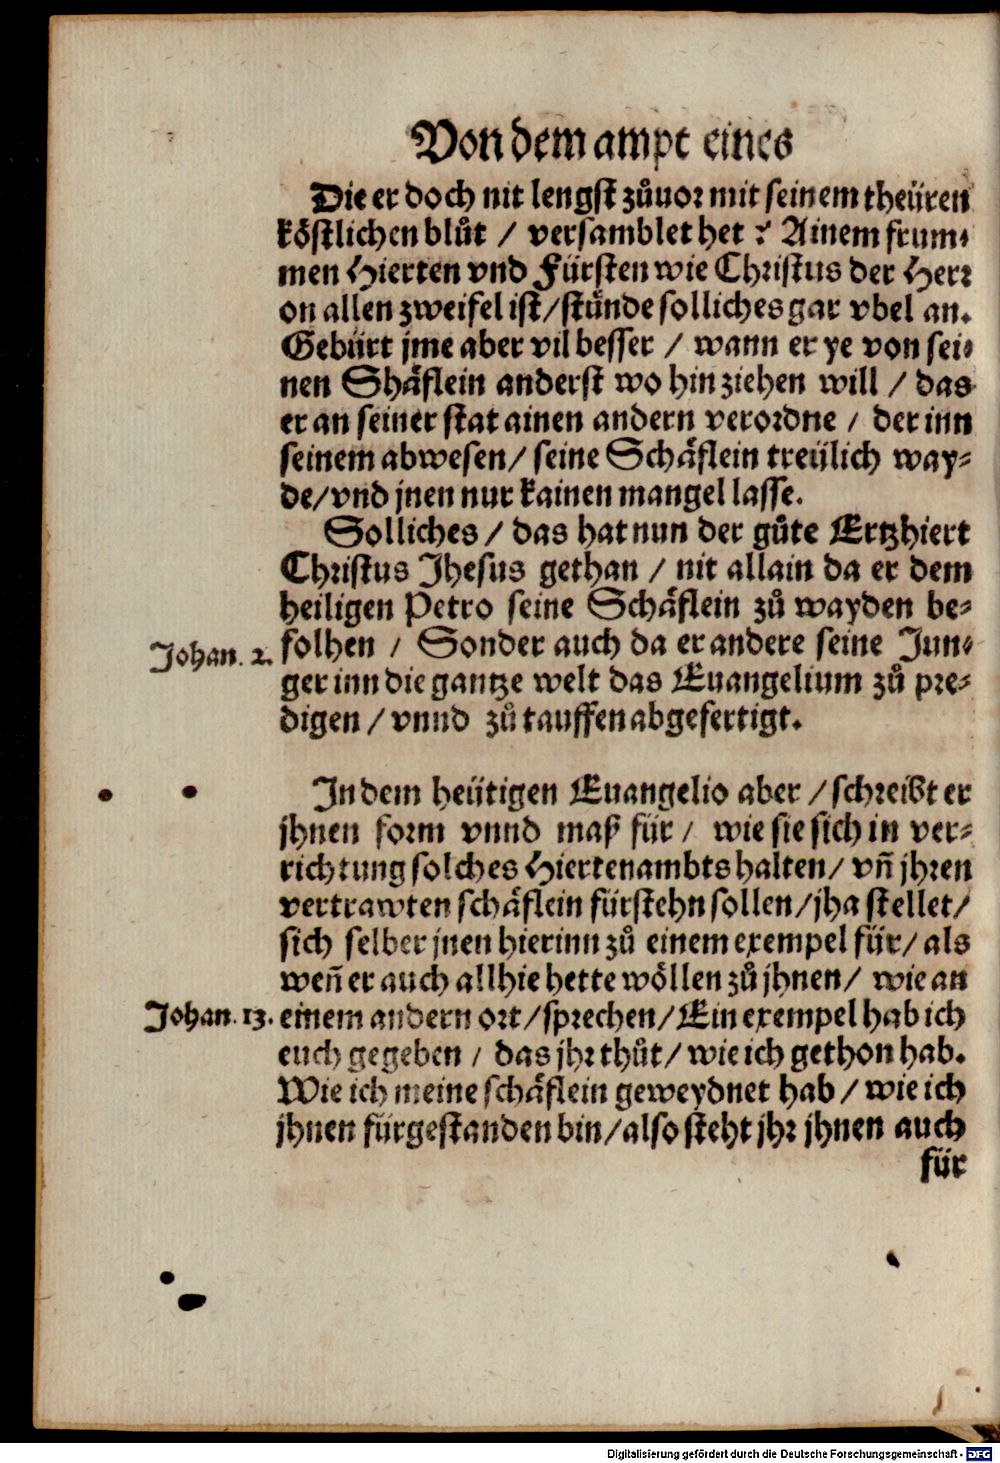 Von dem ampt eines
Die er doch nit lengst zůuor mit seinem theüren
köstlichen blůt / versamblet het? Ainem frum⸗
men Hierten vnd Fürsten wie Christus der Herr
on allen zweifel ist / stünde solliches gar vbel an.
Gebürt jme aber vil besser / wann er ye von sei⸗
nen Shäflein anderst wo hin ziehen will / das
er an seiner stat ainen andern verordne / der inn
seinem abwesen / seine Schäflein treülich way⸗
de / vnd jnen nur kainen mangel lasse.
Solliches / das hat nun der gůte Ertzhiert
Christus Jhesus gethan / nit allain da er dem
heiligen Petro seine Schäflein zů wayden be⸗
Johan. 2. folhen / Sonder auch da er andere seine Jun⸗
ger inn die gantze welt das Euangelium zů pre⸗
digen / vnnd zů tauffen abgefertigt.
In dem heütigen Euangelio aber / schreibt er
jhnen form vnnd maß für / wie sie sich in ver⸗
richtung solches Hiertenambts halten / vñ jhren
vertrawten schäflein fürstehn sollen / jha stellet /
sich selber jnen hierinn zů einem exempel für / als
weñ er auch allhie hette wöllen zů jhnen / wie an
Johan. 13. einem andern ort / sprechen / Ein exempel hab ich
euch gegeben / das jhr thůt / wie ich gethon hab.
Wie ich meine schäflein geweydnet hab / wie ich
jhnen fürgestanden bin / also steht jhr jhnen auch
für
Digitalisierung gefördert durch die Deutsche Forschungsgemeinschaft - DFG